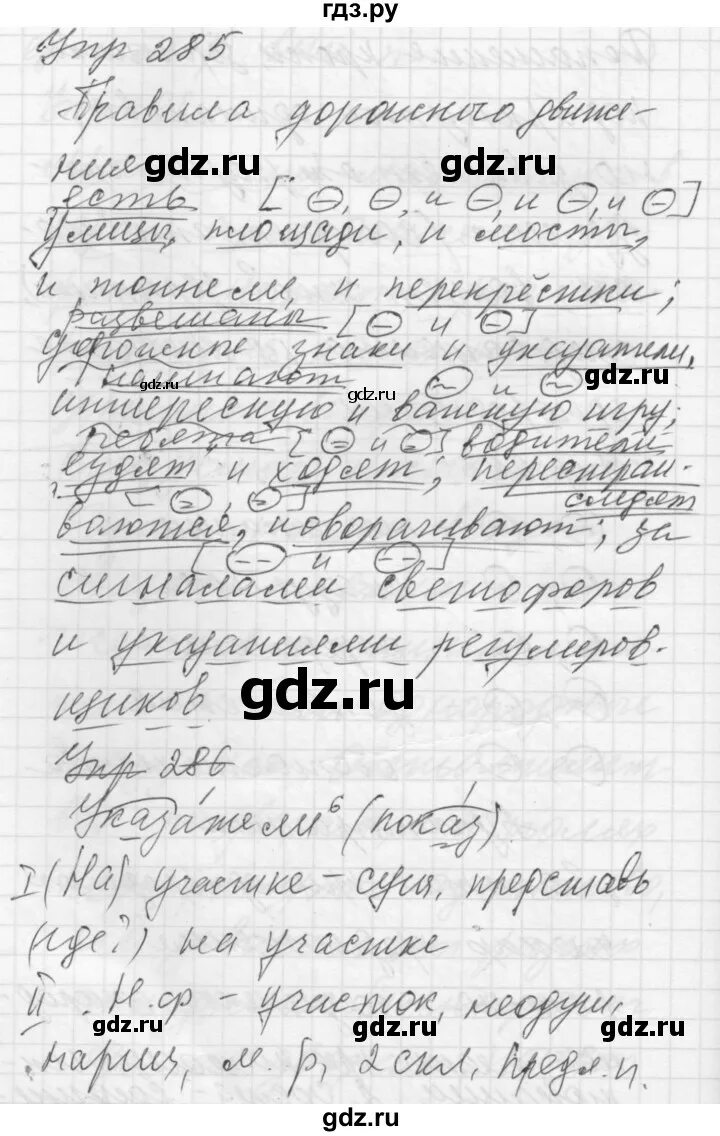 гдз.ру
Упр 285
Правила дорожного движе-
ния
gdz.ru gdz.ru
есть [⊖, ⊖, и ⊖, и ⊖, и ⊖]
Улицы, площади, и мосты,
и тоннели, и перекрёстки;
развешаны [⊖ и ⊖]
дорожные знаки и указатели,
gdz.ru
начинают и
gdz.ru gdz.ru
интересную и важную игру;
ребята [⊖ и ⊖] водители
ездят и ходят; перестраи-
[ , ] следят
ваются, поворачивают; за
[ и ]
сигналами светофоров
и указаниями регулиров-
gdz.ru
щиков.
Упр 286
Указатели⁶ (показ)
I (На) участке – сущ, представь
(где?) на участке
II. Н.ф – участок, неодуш,
gdz.ru gdz.ru gdz.ru
нариц, м. р, 2 скл, Предл. п.
gdz.ru